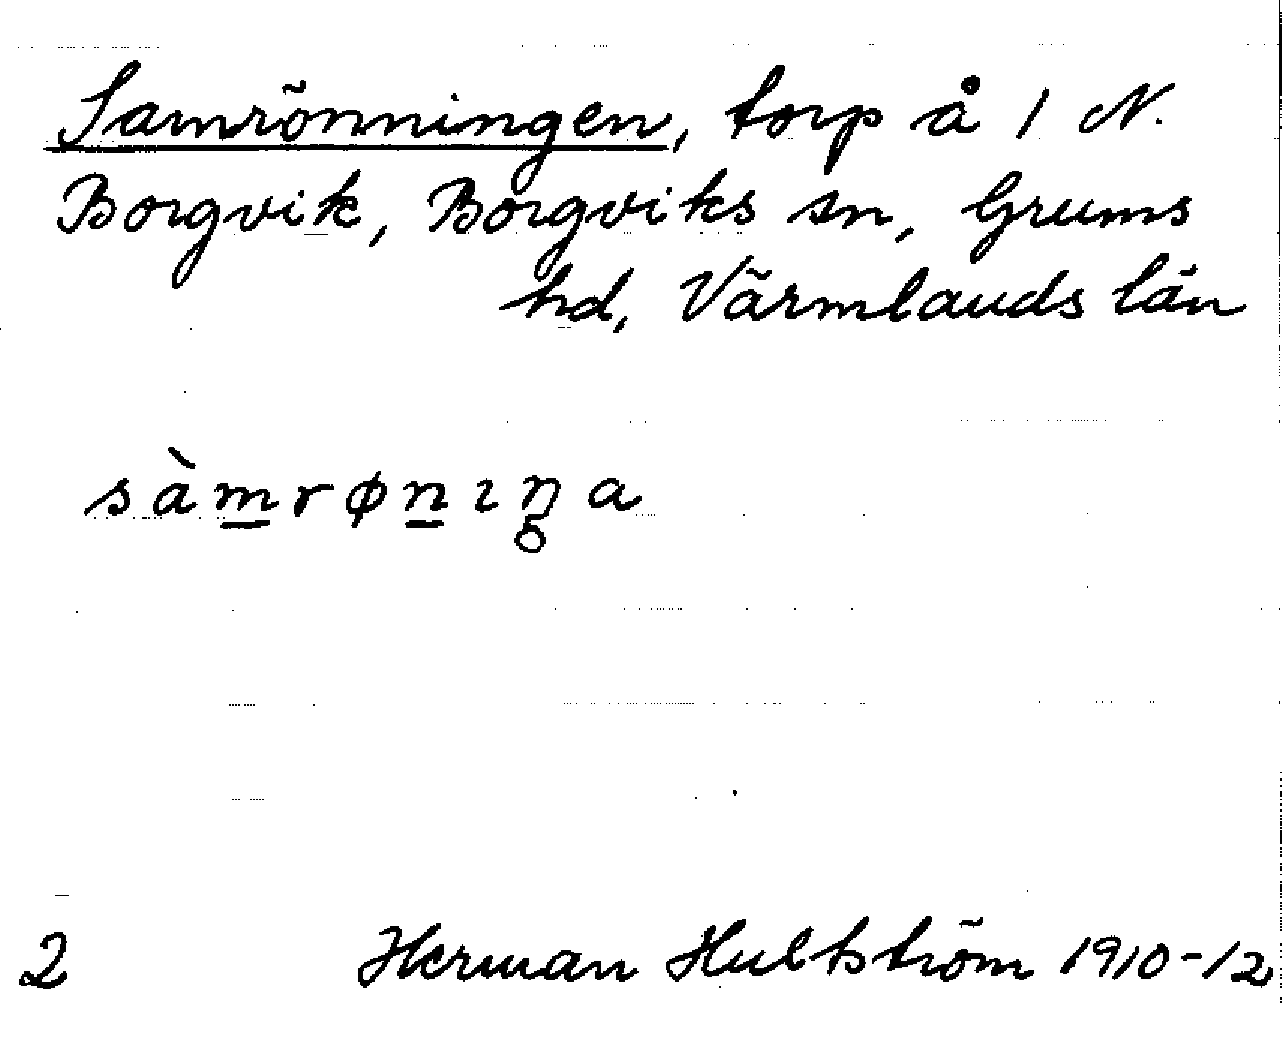 Samrönningen, torp å 1 N.
Borgvik, Borgviks sn, Grums
hd, Värmlands län
sàm̲røn̲ıŋ̥a
2 Herman Hultström 1910-12